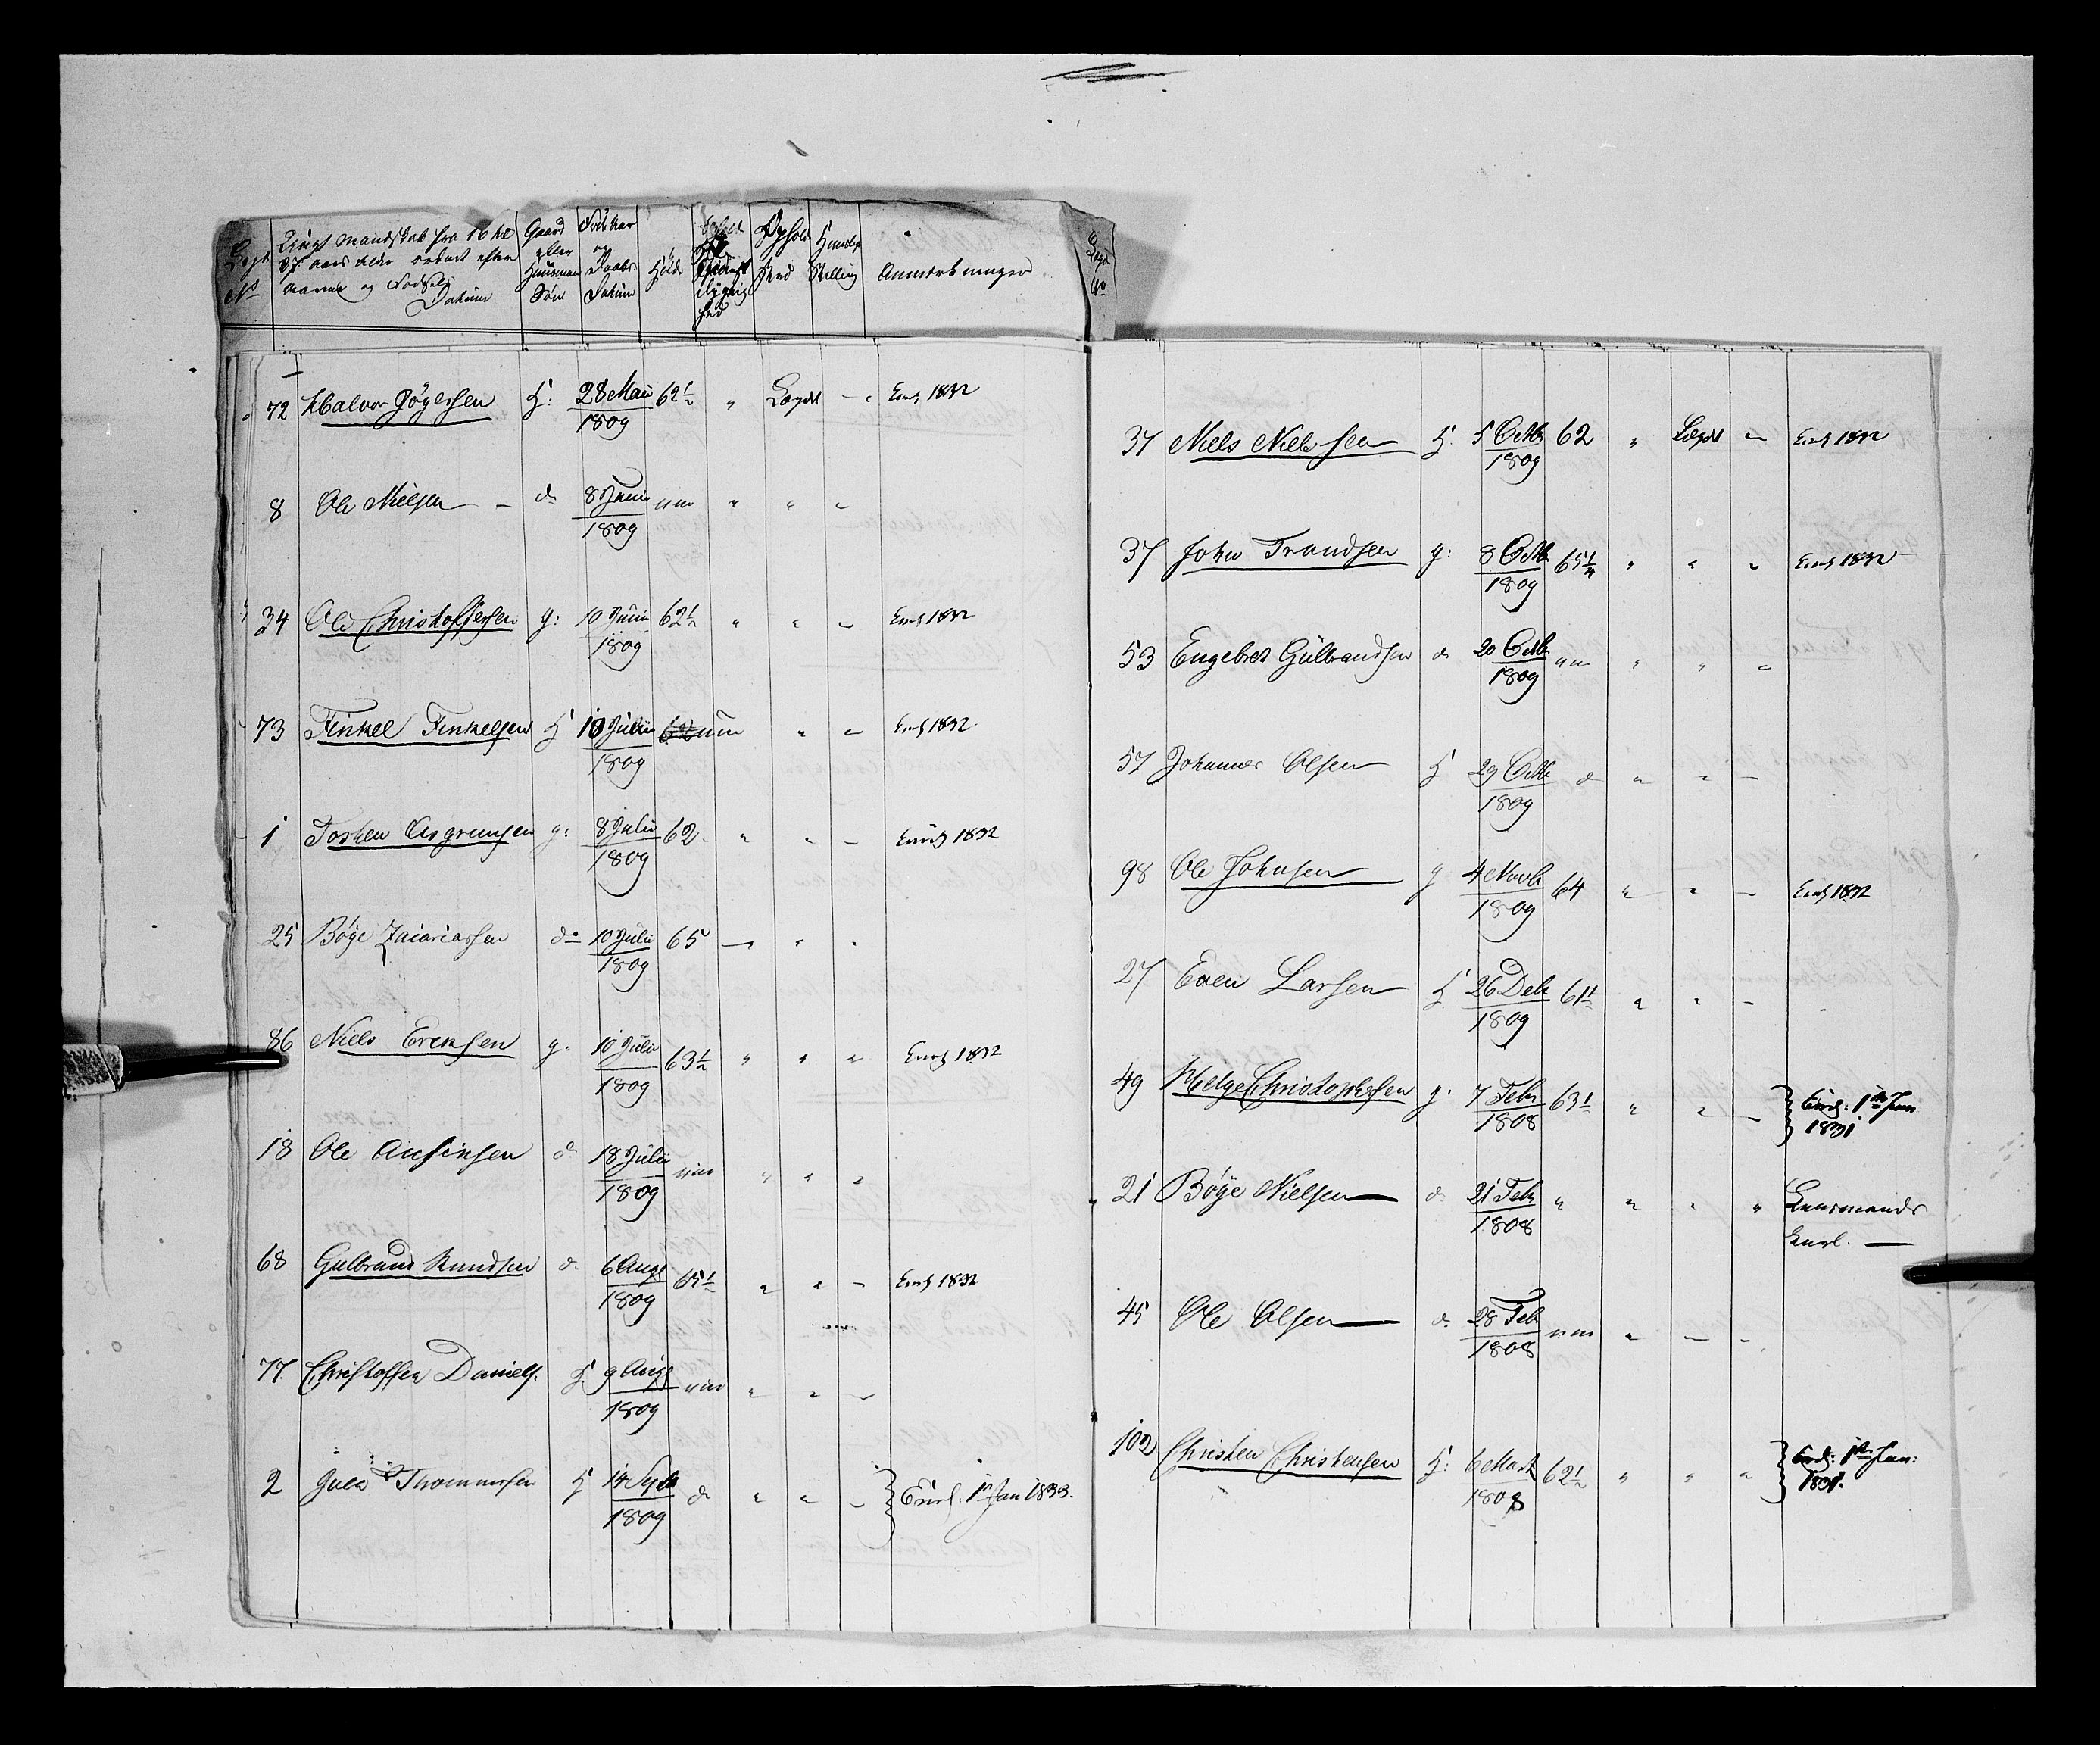 Lægd
No
Ungt Mandskab fra 16 til
37 aars Alder ordnet efter
Navne og Fødsels
Datum
Gaard
eller
Huusman
Søn
Fødsels
og
Daabs
Datum
Høide
Ophold
Sted
Stilling
Anmærkninger
Lægd
No
72 Halvor Jögersen H: 28 Maii 1809 62½ " Lægdet - " Enr. 1832
8 Ole Nielsen - do 8 Junii 1809 um " " "
34 Ole Christoffersen g: 10 Junii 1809 62½ " " " Enr. 1832
73 Tinkel Tinkelsen H 10 Julii 1809 62 um " " Enr. 1832
1 Tosten Asgrimsen g: 8 Julii 1809 62. " " - Enr. 1832
25 Böye Zacariassen do 10 Julii 1809 65 - " "
86 Niels Ericksen g. 10 Julii 1809 63½ " " " Enr. 1832
18 Ole Ansinsen d. 18 Julii 1809 um " " "
68 Gulbrand Knudsen d. 6 Augs 1809 65½ " " - Enr. 1832
77. Christoffer Daniels. H 9 Augs 1809 um " " -
2 Thommesen H 14 Septb 1809 d " " - Enr. 1ste Jan 1833.
37 Niels Nielsen H. 5 Octbr 1809 62 " Lægdet " Enr. 1832
37 John Trondsen g: 8 Octbr 1809 65¼ " " " Enr. 1832
53 Engebret Gulbrandsen d. 20 Octbr 1809 um " " "
57 Johannes Olsen H 29 Octbr 1809 d " " -
98 Ole Johnsen g 4 Novbr 1809 64 " " - Enr. 1832
27 Even Larsen H. 26 Debr 1809 61½ " " -
49 Helge Christophersen g. 7 Febr 1808 63½ " " - Enr.: 1ste Jan
1831
21 Böye Nielsen d. 21 Febr 1808 " " " " Lensmands
Karl. -
45 Ole Olsen d. 28 Febr 1808 um " - -
102 Christen Christensen H: 6 Marts 1808 62½ " " " Enr.: 1ste Jan:
1831.